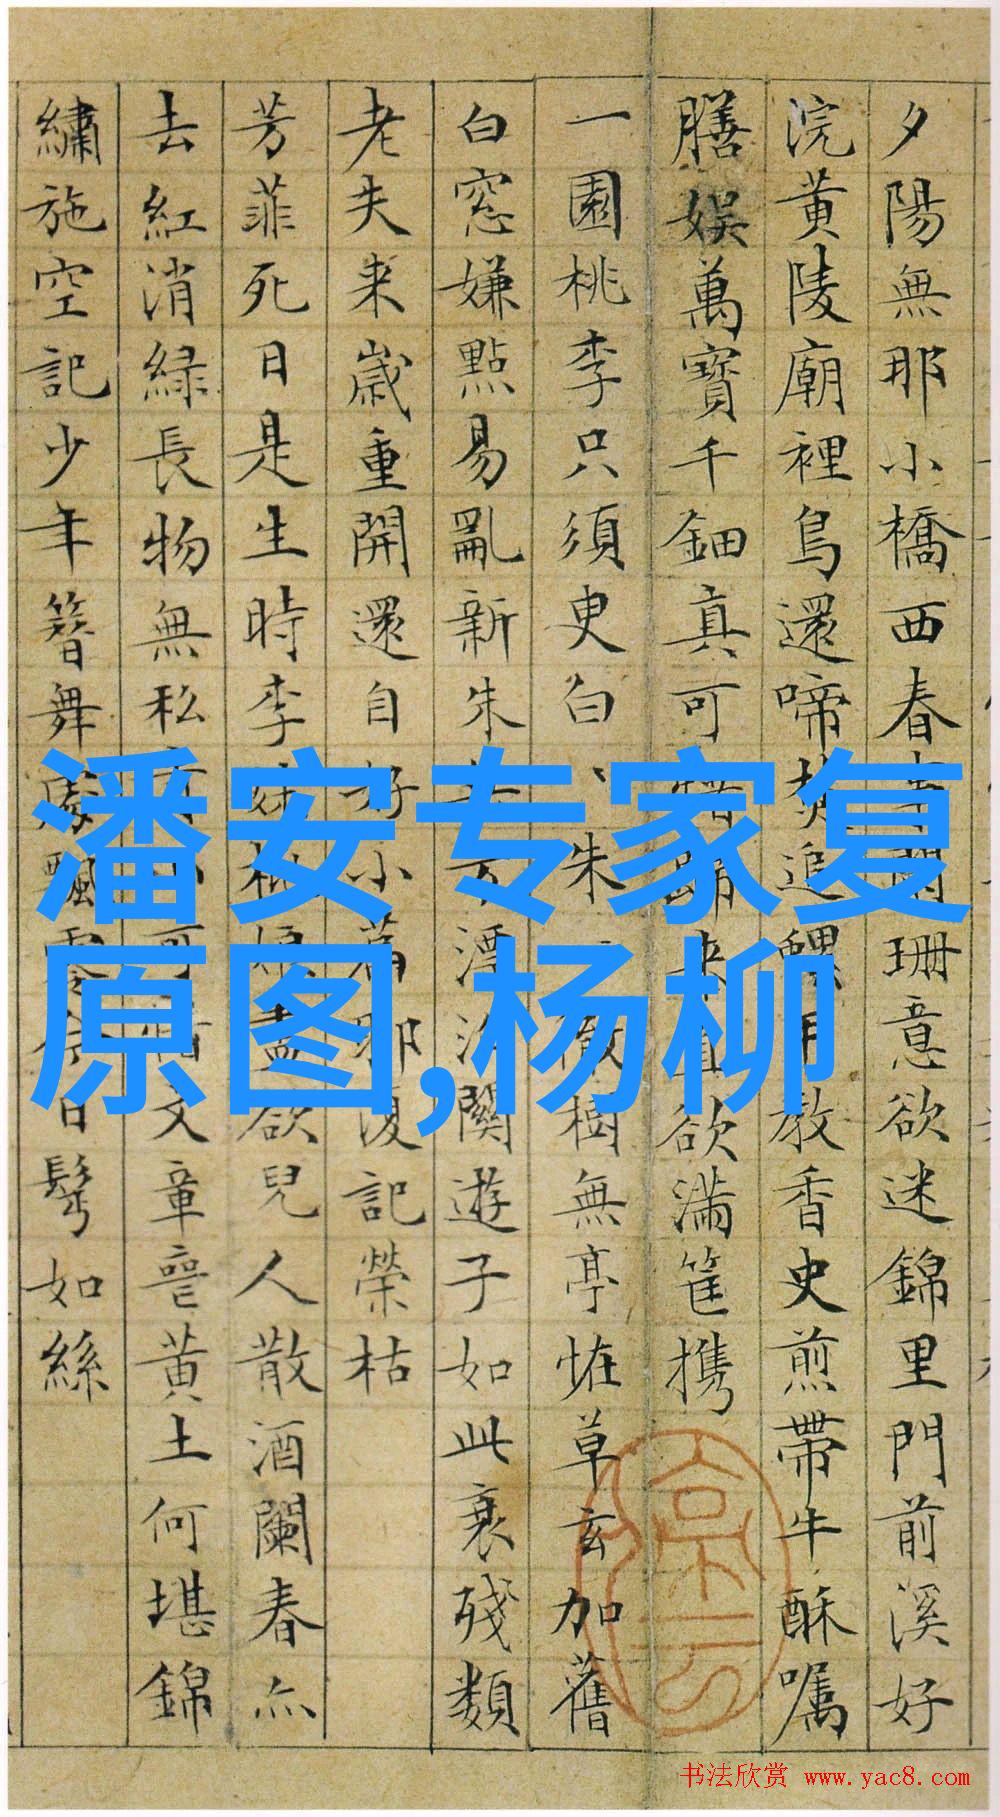 夕陽無那小橋西春意欲迷錦里門前溪好
浣黃陵廟裡鳥還啼追教香史煎帶牛酥嘱
膳娛萬寶千鈿真可来直欲滿筐携
一園桃李只須吏白、朱樹無亭恠草玄加舊
白窓嫌點易亂新朱漂關遊子如此衰殘類
老夫来歲重開還自好小篇那復記榮枯
芳菲死日是生時李欲兒人散酒闌春亦
去紅消緑長物無私文章豈黃土何堪錦
繡施空記少年簪舞飄零日鬂如絲
潘安专家复
原图,杨柳
书法欣赏 www.yac8.com